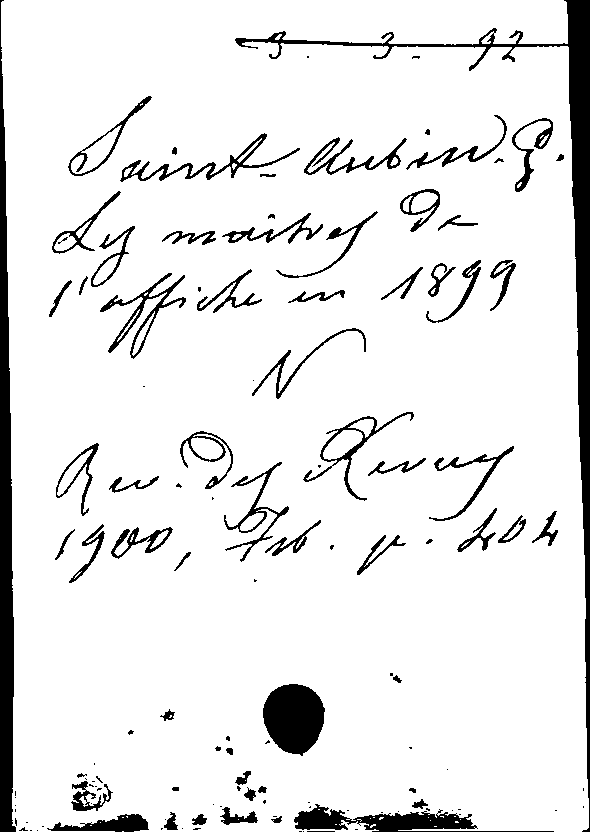 3. 3. 92
Saint-Aubin. P.
Les maîtres de
l'affiche en 1899
N
Rev. des Revues
1900, Feb. p. 404